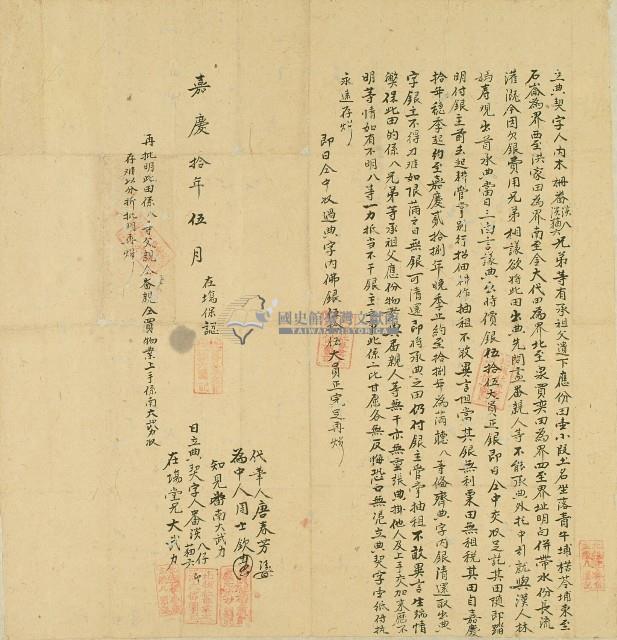 立典契字人內木柵番漢八六兄弟等有承祖父遺下應份田壹小段土名坐落青牛埔楛苓埔東至
石崙為界西至洪家田為界南至全大代田為界北至梁買奕田為界四至界址明白併帶水份長流
灌溉今因欠銀費用兄弟相議欲將此田出典先問盡番親人等不能承典外托中引就與漢人林
媽壽現出首承典當日三面言議典出時價銀伍拾伍大員正銀即日仝中交收足訖其田隨即踏
明付銀主前去起耕管掌別行招佃耕作抽租不敢異言但當其銀無利粟田無租稅其田自嘉慶
拾年穏季起約至嘉慶貳拾捌年晚季止約至拾捌年為滿聽八等備齊典字內銀清還取出典
字銀主不得刁難如限滿之日無銀可清還即將承典之田仍付銀主管掌抽租不敢異言生端情
弊保此田的係八兄弟等承祖父應份物業與房親人等無干亦無重張典掛他人及上手交加來歷不
明等情如有不明八等一力抵當不干銀主之事此係二比甘愿各無反悔恐口無憑立典契字壹紙付執
永遠存炤
即日仝中收過典字內佛銀伍拾伍大員正完足再炤
在場保認
代筆人唐春芳
為中人周士欽
知見 南大武力
嘉慶拾年伍月 日立典契字人番漢八仔
在場堂兄大武力
再批明此田係八等父親仝番親合買物業上手係南大武力收
存難以分折批明再炤
國史館臺灣文獻館
TAIWAN HISTORICA